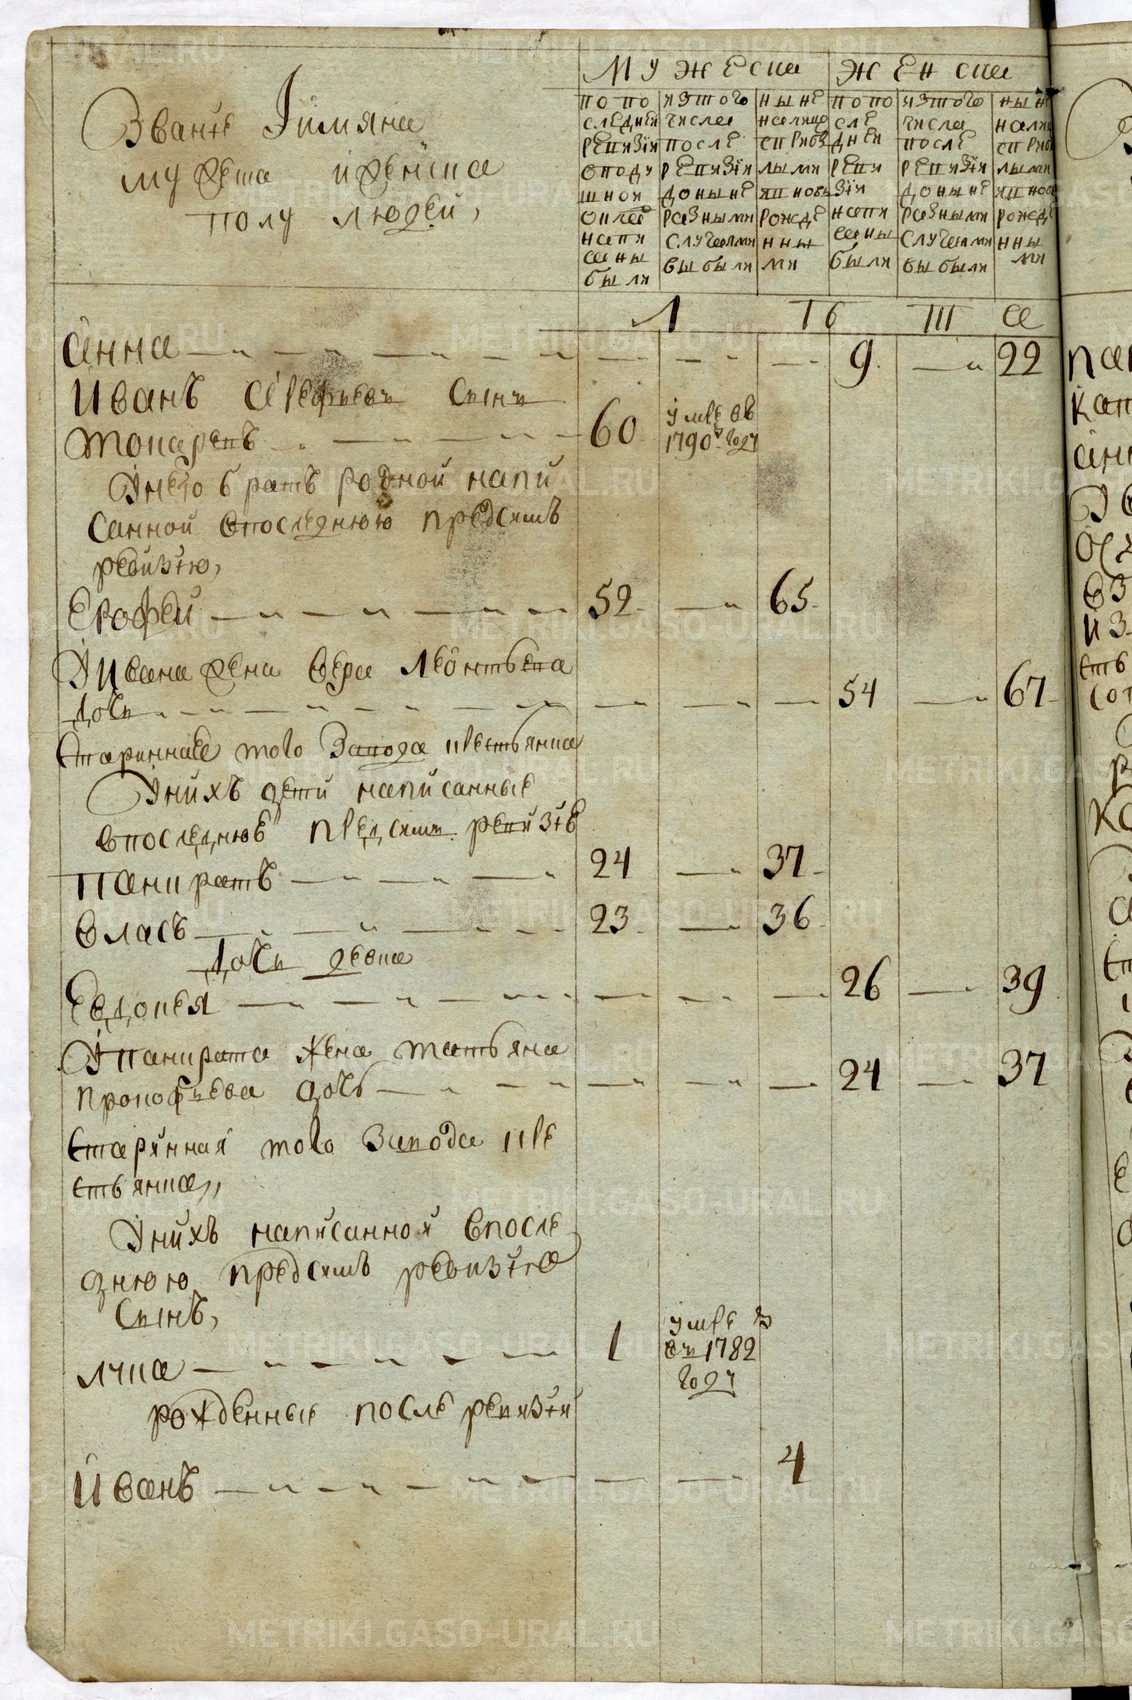 Званiе Iимяна
мужеска иженска
полу людей,
Мужеска
Женска
попо следней ревизiи оподушной окладе написаны были
изтого числа после ревизiи доныне разными случаями выбыли
ныне налицо сприбылыми ивновь рожденными
попо следней ревизiи написаны были
изтого числа после ревизiи доныне разными случаями выбыли
ныне налицо сприбылыми ивновь рожденными
Анна 9 22
Иванъ Арефьевъ сынъ
токаревъ 60 умре въ 1790м году
Унего братъ родной напи
санной впоследнюю предсимъ
ревизiю,
Ерофей 52 65
Уивана жена вера леонтьева
дочь 54 67
Стариннаго того завода крестьянка
Унихъ дети написанные
впоследнюю предсимъ ревизiю
Панкратъ 24 37
власъ 23 36
дочь девка
Евдокея 26 39
Упанкрата жена татьяна
прокофьева дочь 24 37
Старинная того завода кре
стьянка,,
Унихъ написанной впосле
днюю предсимъ ревизiю
сынъ,
лука 1 умре въ 1782 году
рожденные после ревизiи
Иванъ 4
METRIKI.GASO-URAL.RU